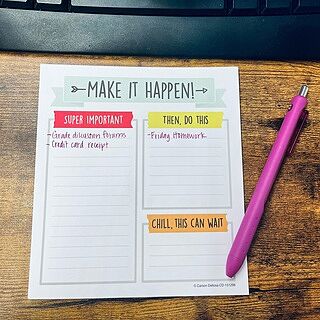 MAKE IT HAPPEN!
SUPER IMPORTANT
-Grade discussion forums
-Credit card receipt
THEN, DO THIS
-Friday Homework
CHILL, THIS CAN WAIT
© Carson Dellosa CD-151298